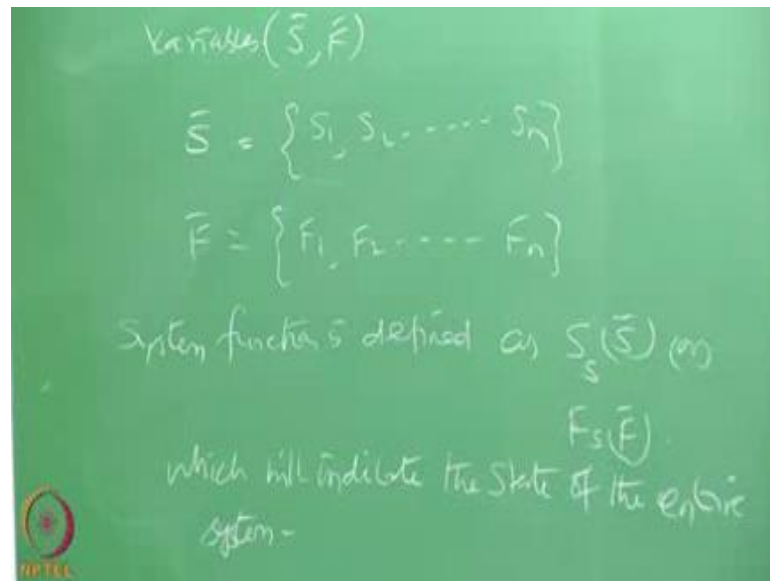 Variables (S̄, F̄)
S̄ = { S₁, S₂ ----- Sₙ }
F̄ = { F₁, F₂ ---- Fₙ }
System function is defined as S_S(S̄) (or)
F_S(F̄).
which will indicate the state of the entire
system -
NPTEL